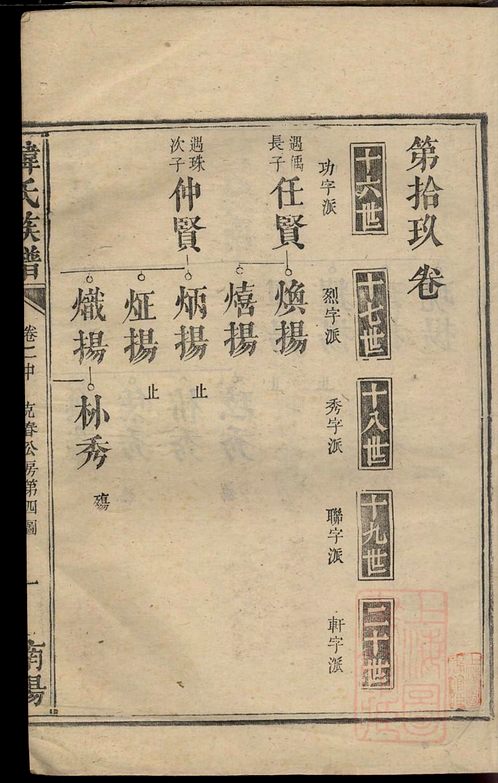 第拾玖卷
十六世
十七世
十八世
十九世
二十世
功字派
烈字派
秀字派
聯字派
軒字派
遇儒長子
任賢
煥揚
熺揚
遇珠次子
仲賢
炳揚
止
炡揚
止
熾揚
朴秀
殤
韓氏族譜
卷二中
克眷公房第四圖
一
南陽